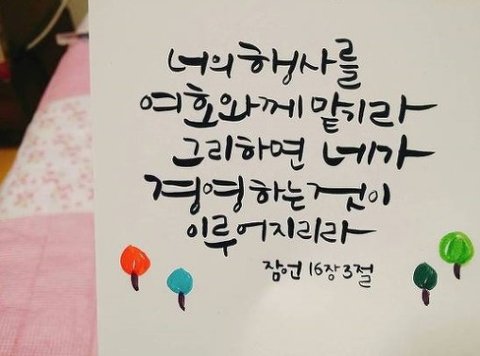 너의 행사를
여호와께 맡기라
그리하면 네가
경영하는 것이
이루어지리라
잠언 16장 3절